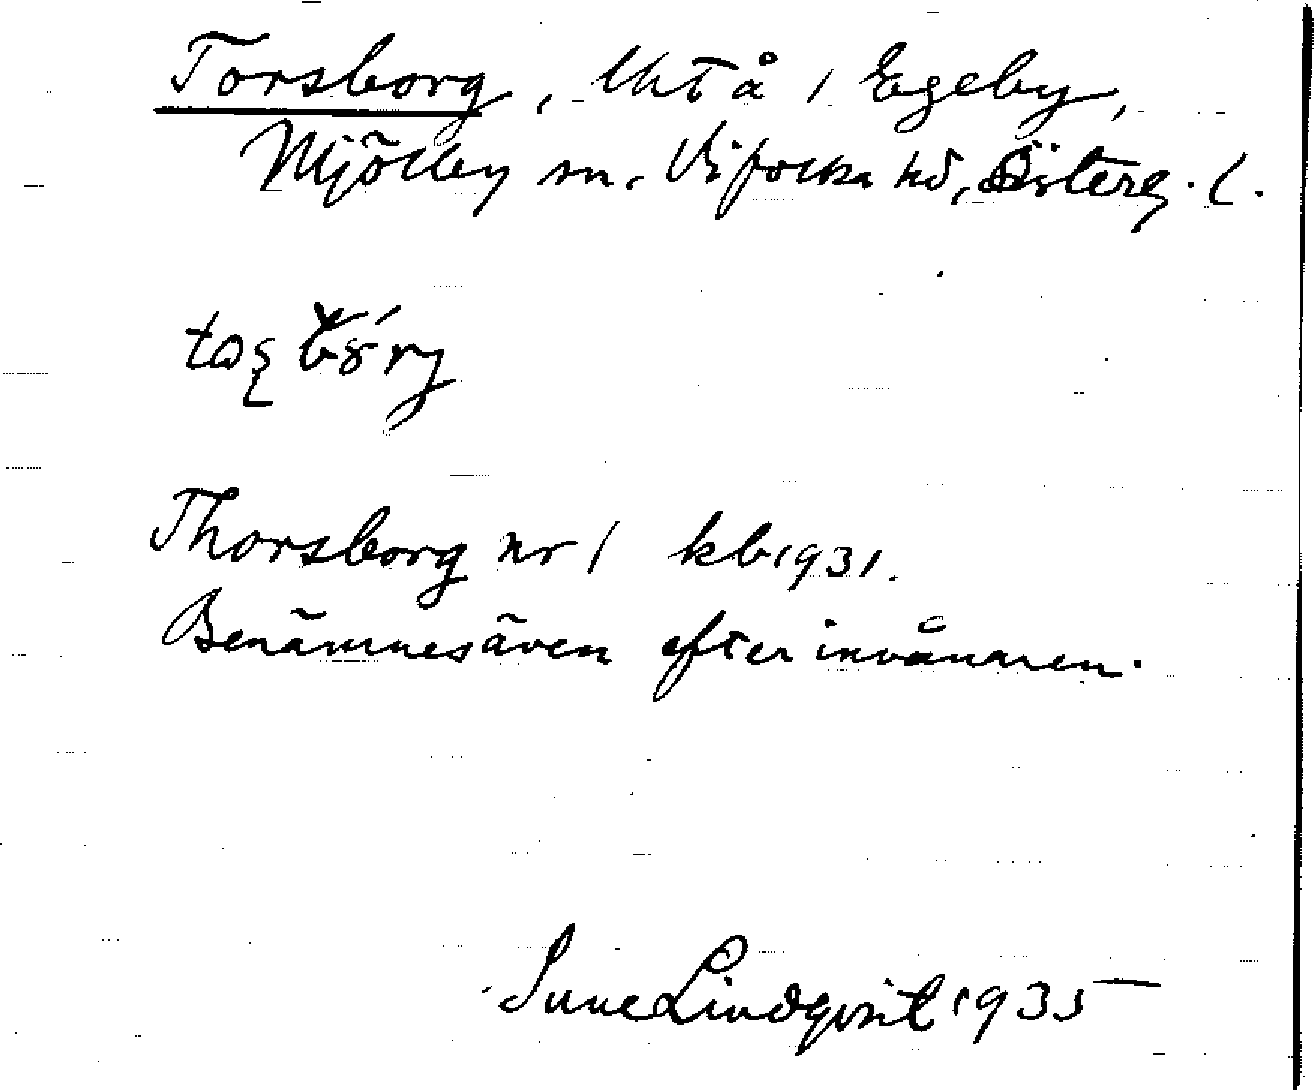 Torsborg, lht å 1 Egeby,
Mjölby sn. Vifolka hd, Österg. l.
Thorsborg nr 1 kb 1931.
Benämnes även efter invånaren.
Sune Lindqvist 1935